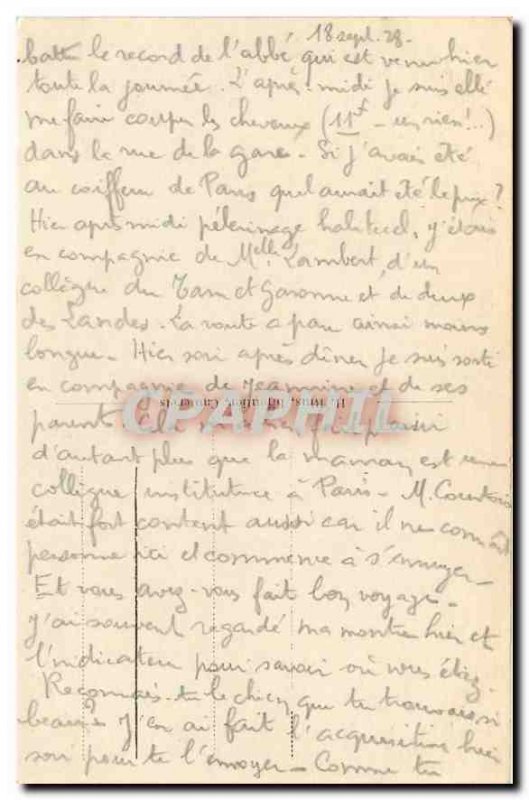 18 sept. 28.
battu le record de l'abbé qui est venu hier
toute la journée. L'après-midi je suis allé
me faire couper les cheveux (11f - un rien!..)
dans la rue de la gare. Si j'avais été
au coiffeur de Paris quel aurait été le prix?
Hier après midi pélerinage habituel, j'étais
en compagnie de Melle Lambert, d'un
collègue du Tarn et Garonne et de deux
des Landes. La route a paru ainsi moins
longue. Hier soir après dîner je suis sorti
en compagnie de Jeannine et de ses
parents
d'autant plus que la maman est une
collègue institutrice à Paris. M. Courtois
était fort content aussi car il ne connaît
personne ici et commence à s'ennuyer.
Et vous avez-vous fait bon voyage.
J'ai souvent regardé ma montre hier et
l'indicateur pour savoir où vous étiez.
Reconnais-tu le chien que tu trouvais si
beau? J'en ai fait l'acquisition hier
soir pour te l'envoyer - Comme tu
CPAPHIL